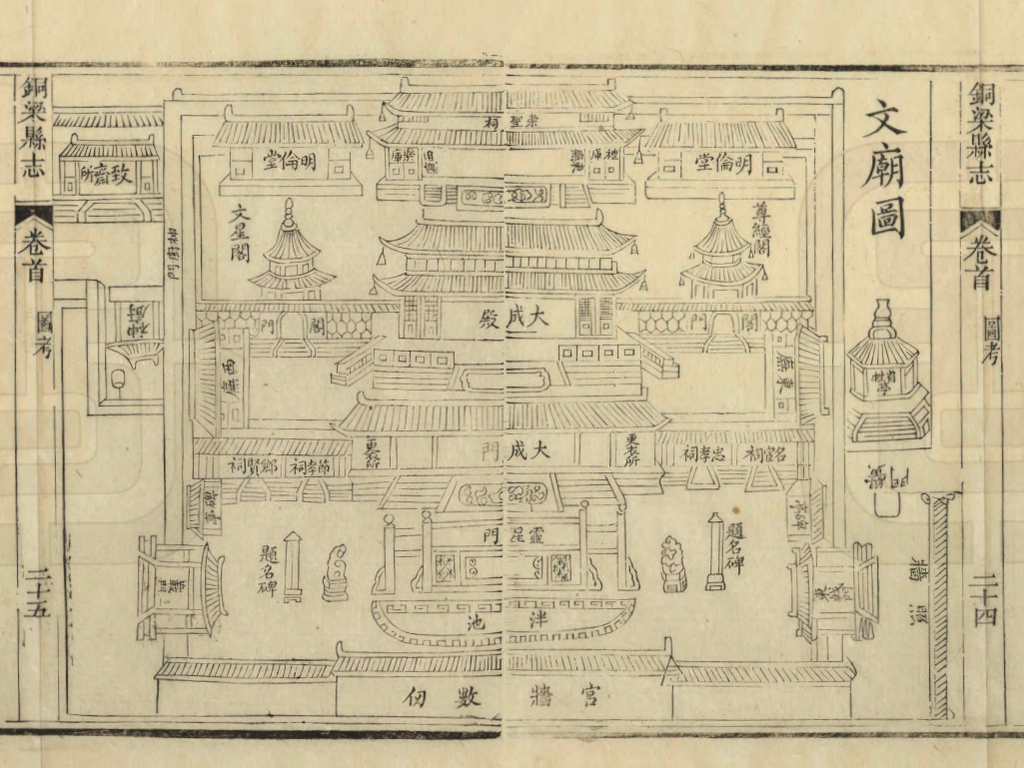 銅梁縣志
卷首
圖考
二十四
文廟圖
崇聖祠
禮
庫
樂
庫
明倫堂
明倫堂
尊經閣
文星閣
大成殿
閣門
閣門
東廡
西廡
大成門
更衣所
更衣所
名宦祠
忠孝祠
節孝祠
鄉賢祠
櫺星門
題名碑
題名碑
泮池
宮牆數仞
照牆
致齋所
神廚
銅梁縣志
卷首
圖考
二十五